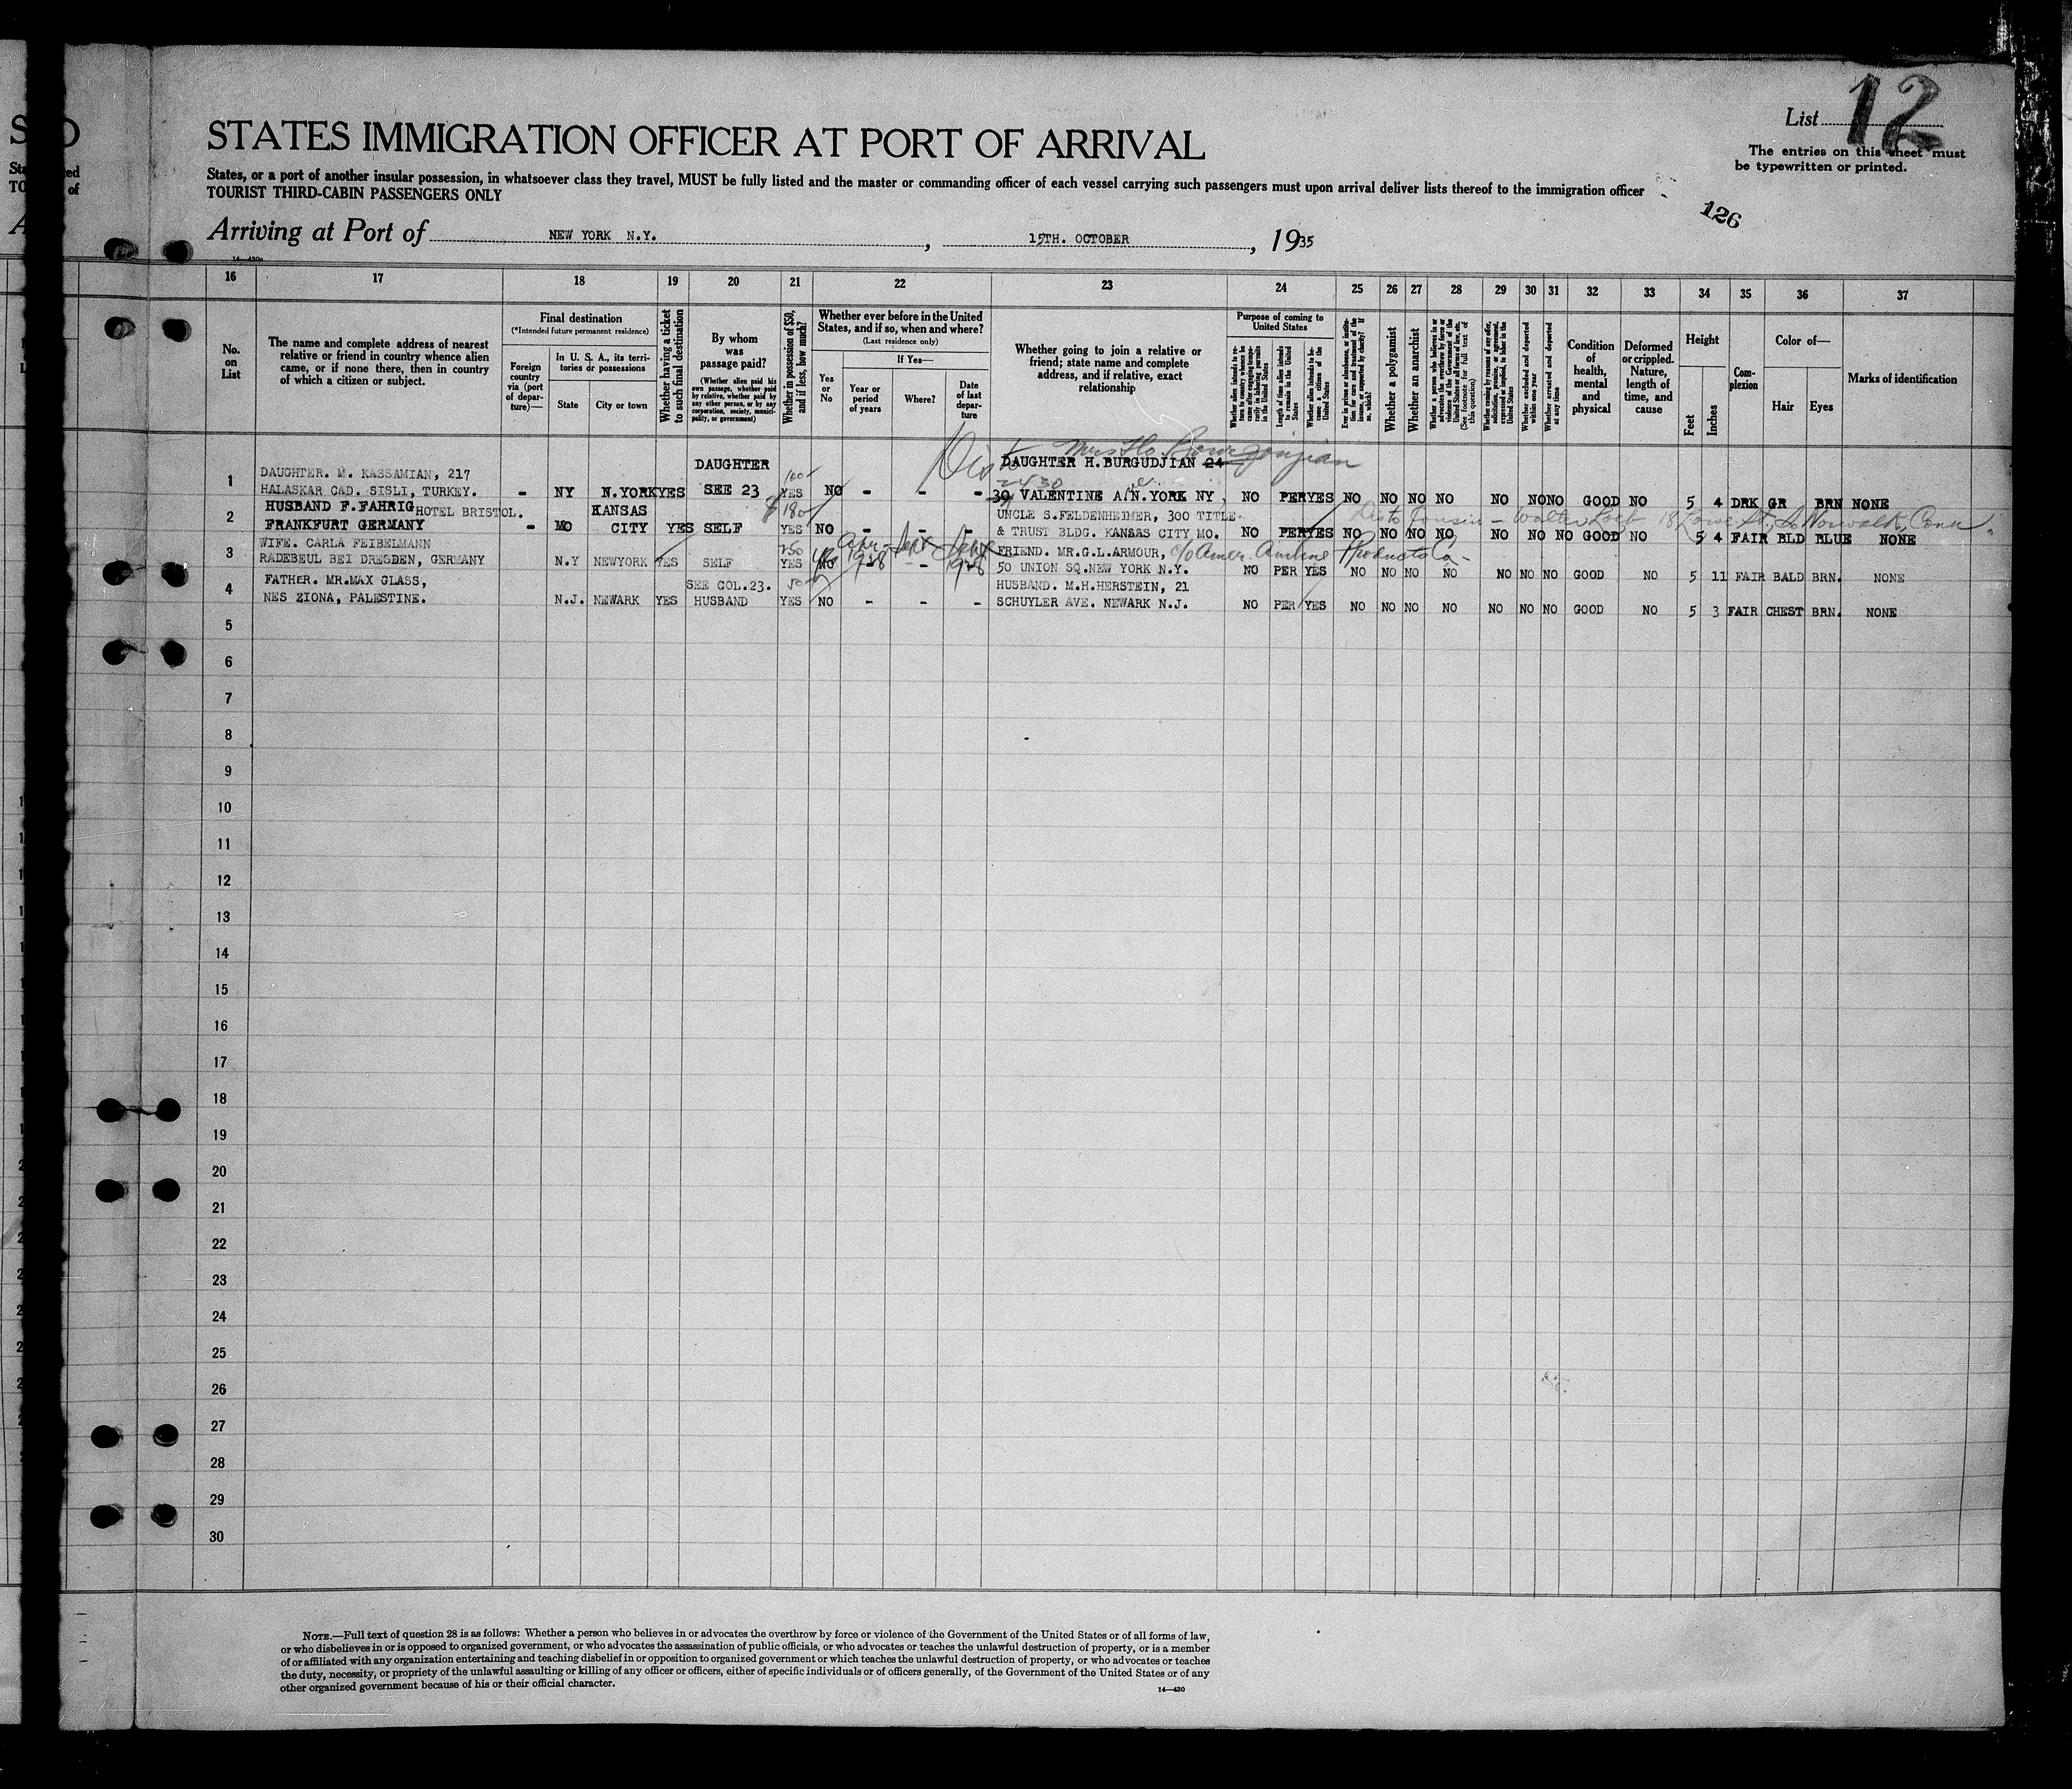 List 12
STATES IMMIGRATION OFFICER AT PORT OF ARRIVAL
The entries on this sheet must
be typewritten or printed.
States, or a port of another insular possession, in whatsoever class they travel, MUST be fully listed and the master or commanding officer of each vessel carrying such passengers must upon arrival deliver lists thereof to the immigration officer
TOURIST THIRD-CABIN PASSENGERS ONLY
126
Arriving at Port of NEW YORK N.Y. , 15TH. OCTOBER , 1935
16 17 18 19 20 21 22 23 24 25 26 27 28 29 30 31 32 33 34 35 36 37
No. on List
The name and complete address of nearest relative or friend in country whence alien came, or if none there, then in country of which a citizen or subject.
Final destination
(*Intended future permanent residence)
Foreign country via (port of departure)—
In U. S. A., its territories or possessions
State
City or town
Whether having a ticket to such final destination
By whom was passage paid?
(Whether alien paid his own passage, whether paid by relative, whether paid by any other person, or by any corporation, society, municipality, or government)
Whether in possession of $50, and if less, how much?
Whether ever before in the United States, and if so, when and where?
(Last residence only)
If Yes—
Yes or No
Year or period of years
Where?
Date of last departure
Whether going to join a relative or friend; state name and complete address, and if relative, exact relationship
Purpose of coming to United States
Length of time alien intends to remain in the United States
Whether alien intends to become a citizen of the United States
Whether a polygamist
Whether an anarchist
Whether excluded and deported within one year
Whether arrested and deported at any time
Condition of health, mental and physical
Deformed or crippled. Nature, length of time, and cause
Height
Feet
Inches
Complexion
Color of—
Hair
Eyes
Marks of identification
Mrs Flo Bourgoujian
DAUGHTER DAUGHTER H.BURGUDJIAN 24
1 DAUGHTER. M. KASSAMIAN, 217 100 2430
HALASKAR CAD. SISLI, TURKEY. - NY N.YORK YES SEE 23 YES NO - - - 39 VALENTINE A.N.YORK NY NO PER YES NO NO NO NO NO NO NO GOOD NO 5 4 DRK GR BRN NONE
2 HUSBAND F.FAHRIG HOTEL BRISTOL. KANSAS $180 UNCLE S.FELDENHEIMER, 300 TITLE Cousin - Walter Loeb 18 Rowe St., So Norwalk, Conn
FRANKFURT GERMANY - MO CITY YES SELF YES NO - - - & TRUST BLDG. KANSAS CITY MO. NO PER YES NO NO NO NO NO NO NO GOOD NO 5 4 FAIR BLD BLUE NONE
3 WIFE. CARLA FEIBELMANN 250 FRIEND. MR.G.L.ARMOUR, c/o Amer. Aniline Products Co -
RADEBEUL BEI DRESDEN, GERMANY N.Y NEWYORK YES SELF YES NO 1928 - 1928 50 UNION SQ.NEW YORK N.Y. NO PER YES NO NO NO NO NO NO NO GOOD NO 5 11 FAIR BALD BRN. NONE
4 FATHER. MR.MAX GLASS, SEE COL.23. 50 HUSBAND. M.H.HERSTEIN, 21
NES ZIONA, PALESTINE. N.J. NEWARK YES HUSBAND YES NO - - - SCHUYLER AVE. NEWARK N.J. NO PER YES NO NO NO NO NO NO NO GOOD NO 5 3 FAIR CHEST BRN. NONE
5
6
7
8
9
10
11
12
13
14
15
16
17
18
19
20
21
22
23
24
25
26
27
28
29
30
NOTE.—Full text of question 28 is as follows: Whether a person who believes in or advocates the overthrow by force or violence of the Government of the United States or of all forms of law,
or who disbelieves in or is opposed to organized government, or who advocates the assassination of public officials, or who advocates or teaches the unlawful destruction of property, or is a member
of or affiliated with any organization entertaining and teaching disbelief in or opposition to organized government or which teaches the unlawful destruction of property, or who advocates or teaches
the duty, necessity, or propriety of the unlawful assaulting or killing of any officer or officers, either of specific individuals or of officers generally, of the Government of the United States or of any
other organized government because of his or their official character.
14—430